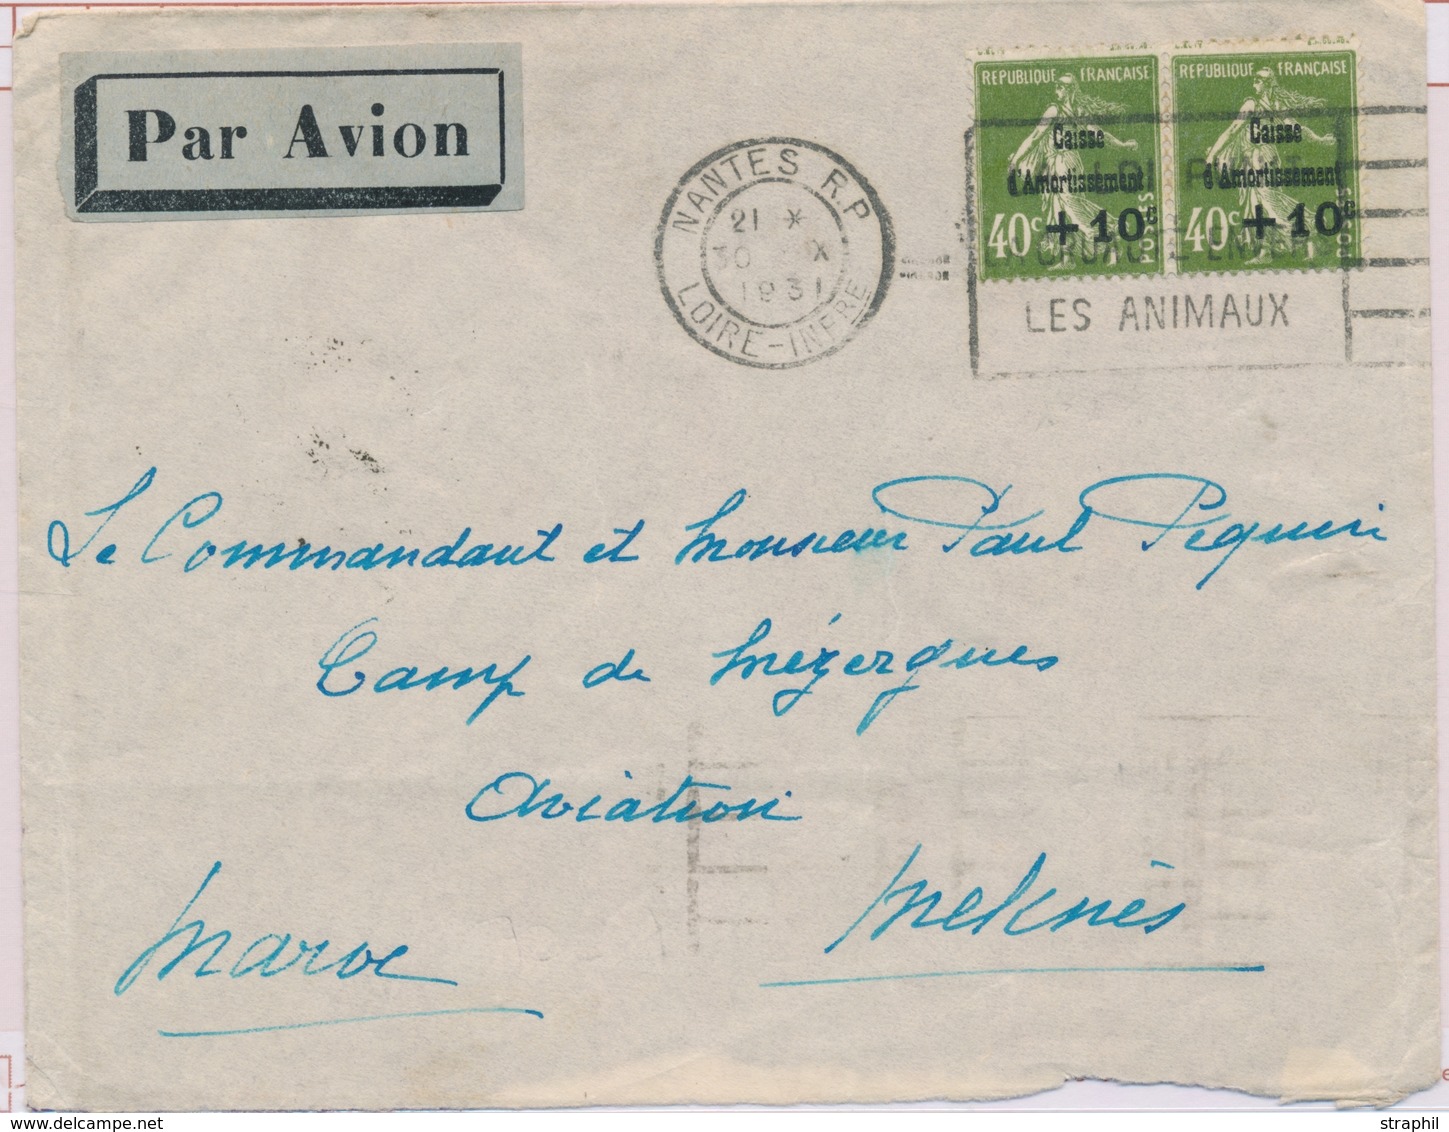 Par Avion
NANTES R.P.
21 *
30 X
1931
LOIRE-INFRE
REPUBLIQUE FRANÇAISE
Caisse
d'Amortissement
40c +10c
POSTES
REPUBLIQUE FRANÇAISE
Caisse
d'Amortissement
40c +10c
POSTES
LA LOI PUNIT
LA CRUAUTE ENVERS
LES ANIMAUX
Le Commandant et Monsieur Paul Pequin
Camp de Mézergues
Aviation
Meknès
Maroc
straphil